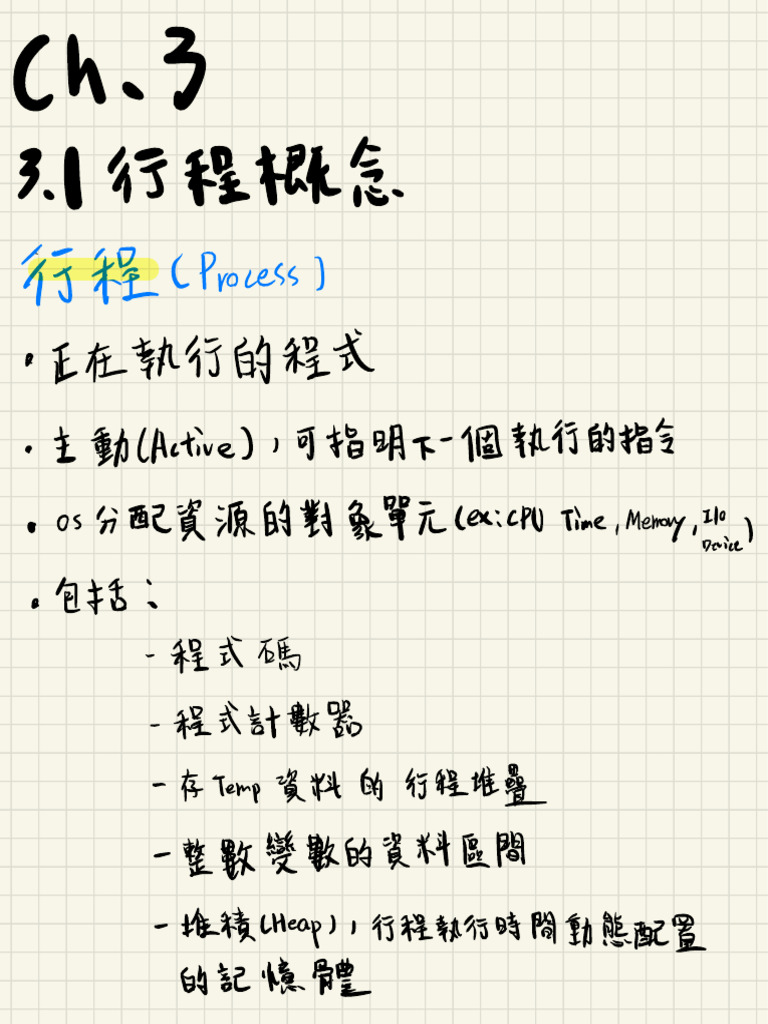 Ch.3
3.1 行程概念
行程(Process)
• 正在執行的程式
• 主動(Active), 可指明下一個執行的指令
• OS分配資源的對象單元(ex:CPU Time, Memory, I/O Device)
• 包括:
- 程式碼
- 程式計數器
- 存Temp資料的行程堆疊
- 整數變數的資料區間
- 堆積(Heap), 行程執行時間動態配置
的記憶體